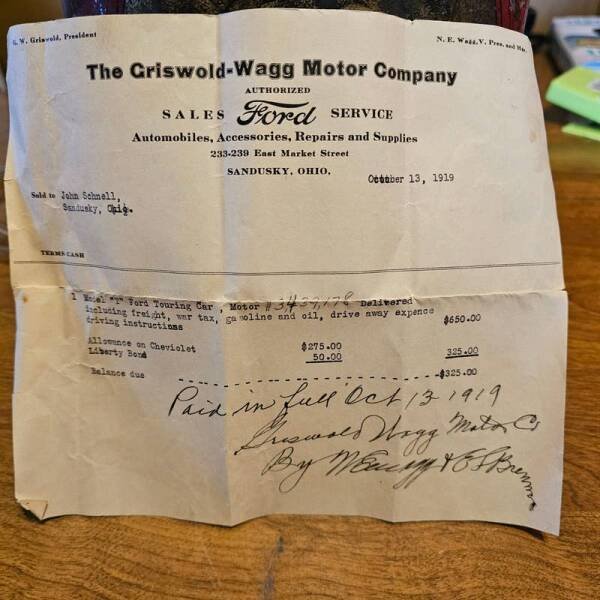 G. W. Griswold, President
N. E. Wagg, V. Pres. and Mgr.
The Griswold-Wagg Motor Company
AUTHORIZED
SALES Ford SERVICE
Automobiles, Accessories, Repairs and Supplies
233-239 East Market Street
SANDUSKY, OHIO,
October 13, 1919
Sold to John Schnell,
Sandusky, Ohio.
TERMS CASH
1 Model "T" Ford Touring Car , Motor # 3439,178 Delivered
including freight, war tax, gasoline and oil, drive away expence
driving instructions $650.00
Allowance on Cheviolet $275.00
Liberty Bond 50.00 325.00
Balance due - - - - - - - - - - - - - - - - - -$325.00
Paid in full Oct 13 1919
Griswold Wagg Motor Co
By NEWagg & ES